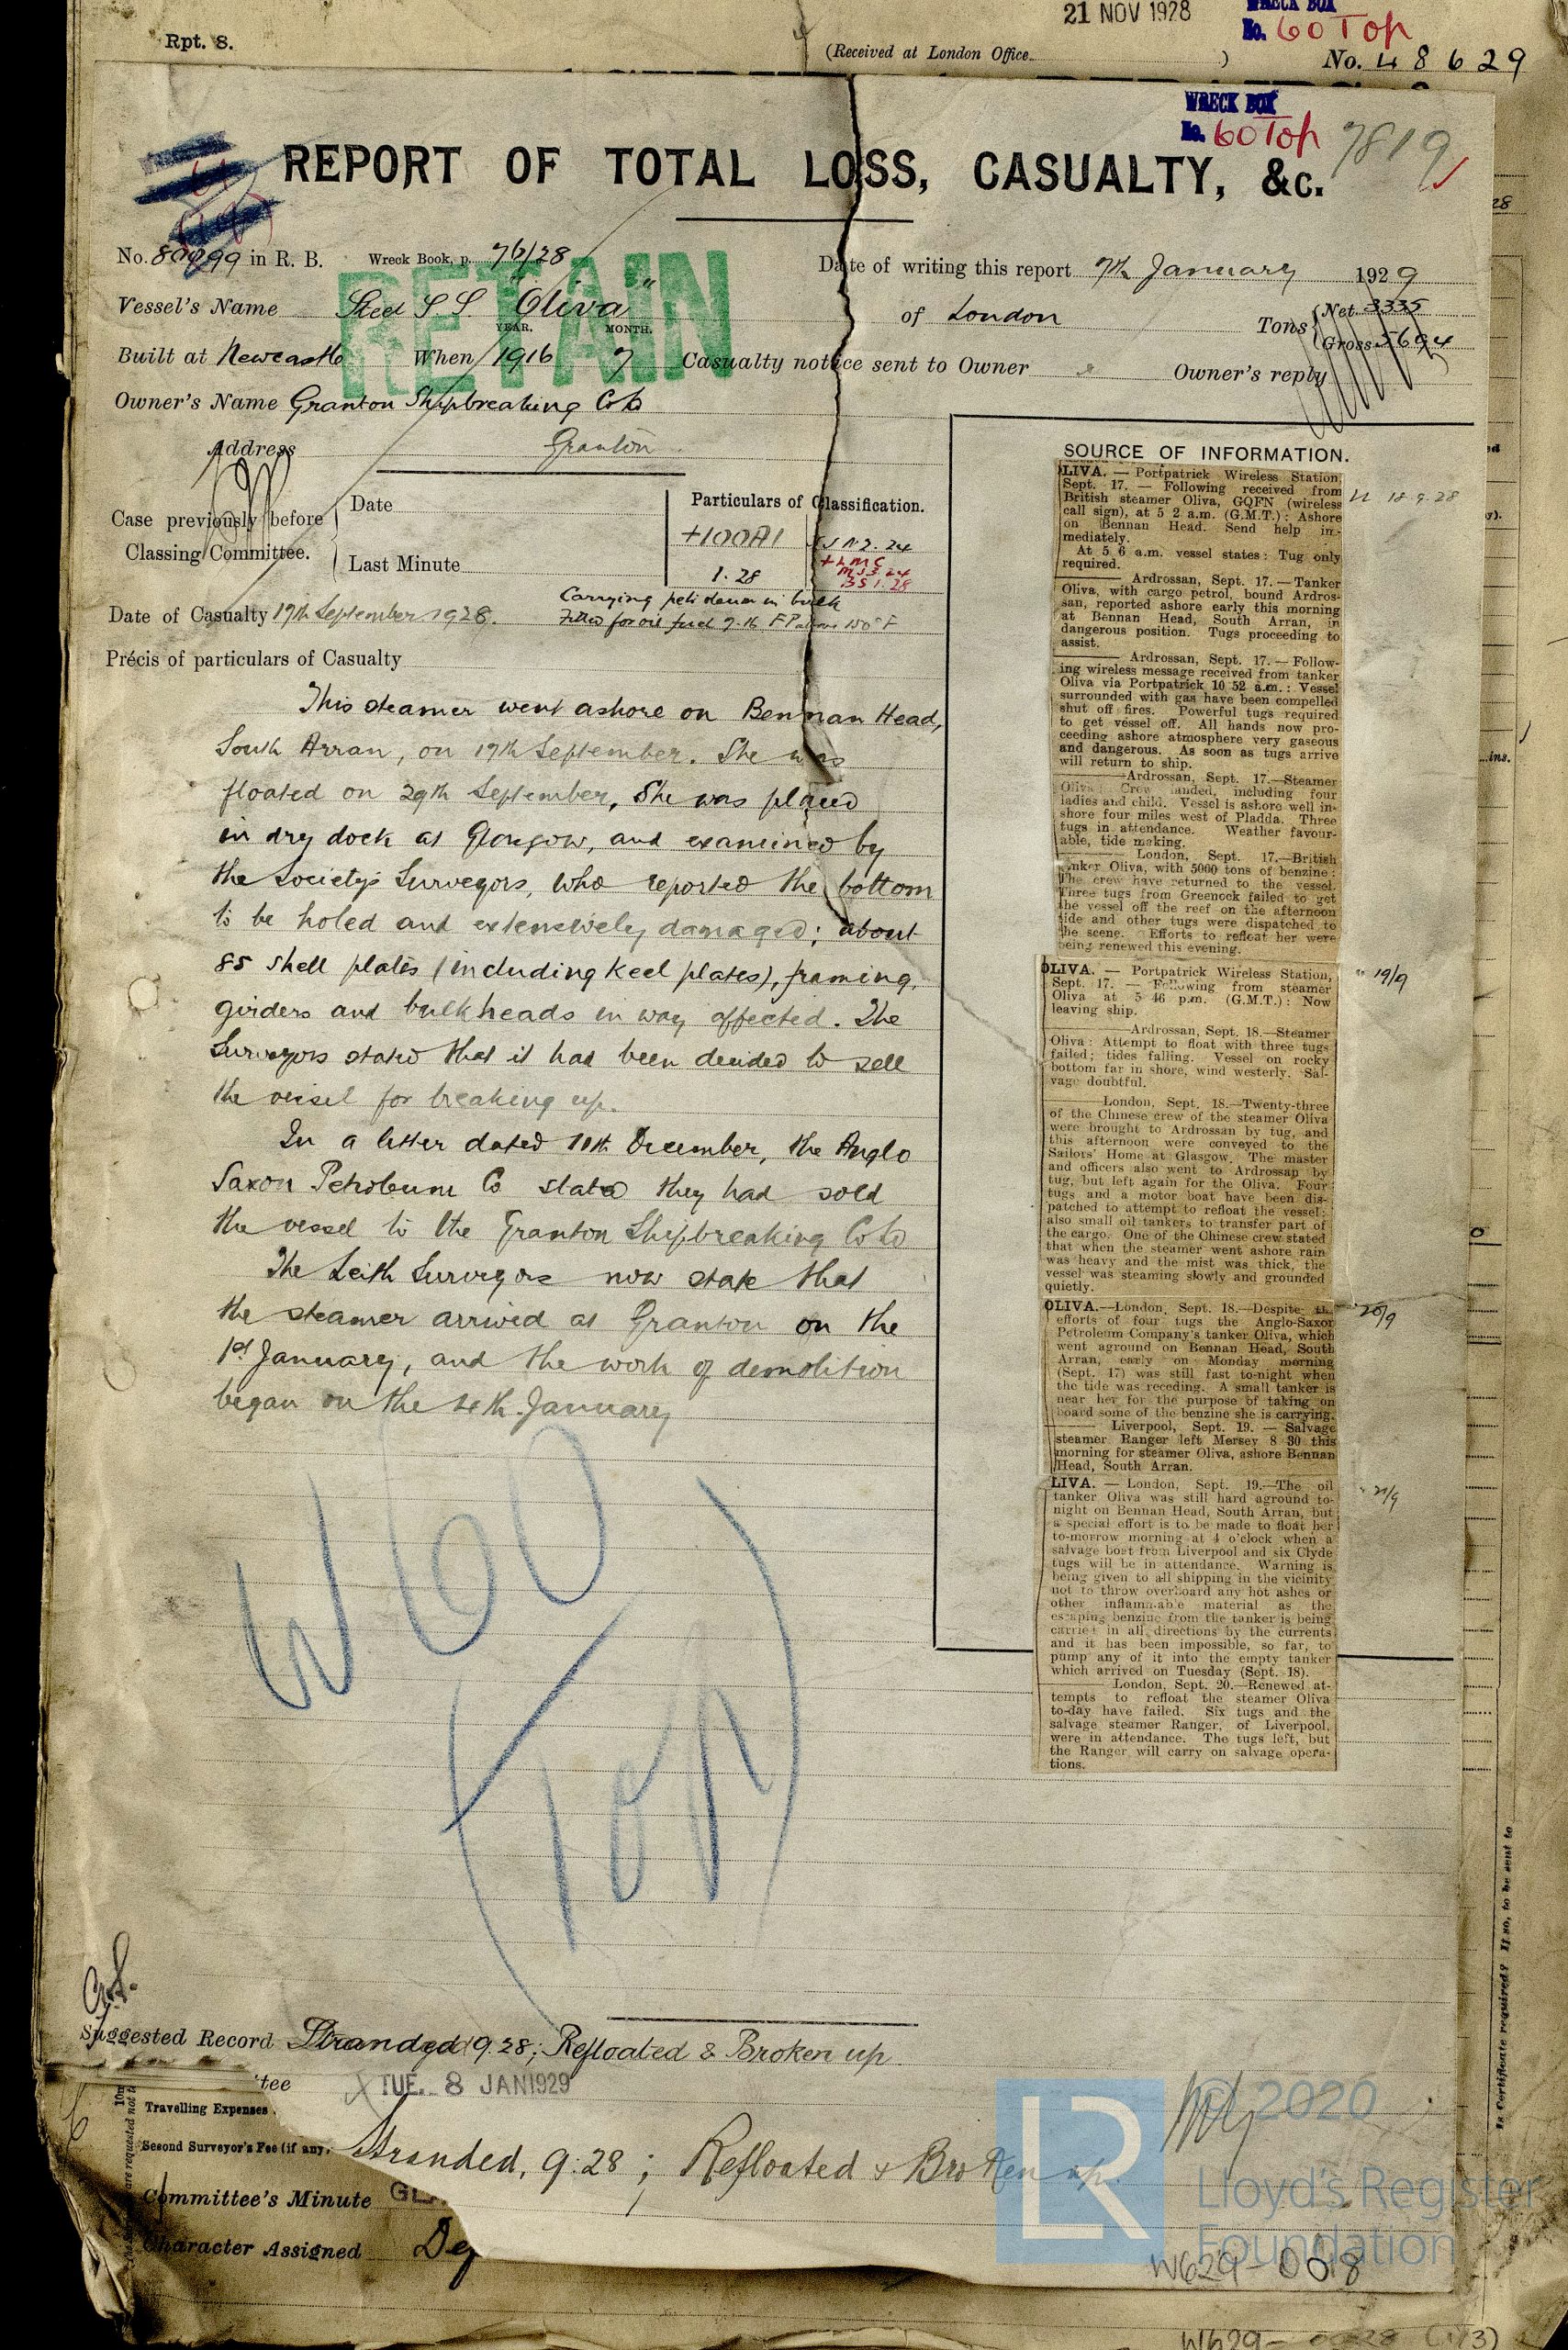 Rpt. 8.
21 NOV 1928
WRECK BOX
No. 60 Top
(Received at London Office
)
No. 48629
WRECK BOX
No. 60 Top
7819
REPORT OF TOTAL LOSS, CASUALTY, &c.
No. in R. B. Wreck Book, p. 76/28
RETAIN
Date of writing this report 7th January 1929
Vessel's Name Steel S.S. "Oliva"
of London
Tons { Net 3335
Gross 5694
YEAR. MONTH.
Built at Newcastle When 1916 7
Casualty notice sent to Owner
Owner's reply
Owner's Name Granton Shipbreaking Co Ld
Address Granton
Case previously before
Classing Committee.
Date
Last Minute
Particulars of Classification.
+100A1
1.28
+LMC
MS 3.24
BS 1.28
Carrying petroleum in bulk
Fitted for oil fuel 7.16 FP above 150°F
Date of Casualty 17th September 1928.
Précis of particulars of Casualty
This steamer went ashore on Bennan Head,
South Arran, on 17th September. She was
floated on 29th September, She was placed
in dry dock at Glasgow, and examined by
the Society's Surveyors, who reported the bottom
to be holed and extensively damaged; about
85 shell plates (including keel plates), framing,
girders and bulkheads in way affected. The
Surveyors stated that it had been decided to sell
the vessel for breaking up.
In a letter dated 11th December, the Anglo
Saxon Petroleum Co stated they had sold
the vessel to the Granton Shipbreaking Co Ld
The Leith Surveyors now state that
the steamer arrived at Granton on the
1st January, and the work of demolition
began on the 4th January
W60
(Top)
SOURCE OF INFORMATION.
LL 18.9.28
OLIVA. — Portpatrick Wireless Station,
Sept. 17. — Following received from
British steamer Oliva, GQFN (wireless
call sign), at 5 2 a.m. (G.M.T.): Ashore
on Bennan Head. Send help im-
mediately.
At 5 6 a.m. vessel states: Tug only
required.
——— Ardrossan, Sept. 17. — Tanker
Oliva, with cargo petrol, bound Ardros-
san, reported ashore early this morning
at Bennan Head, South Arran, in
dangerous position. Tugs proceeding to
assist.
——— Ardrossan, Sept. 17. — Follow-
ing wireless message received from tanker
Oliva via Portpatrick 10 52 a.m.: Vessel
surrounded with gas have been compelled
shut off fires. Powerful tugs required
to get vessel off. All hands now pro-
ceeding ashore atmosphere very gaseous
and dangerous. As soon as tugs arrive
will return to ship.
——— Ardrossan, Sept. 17.—Steamer
Oliva: Crew landed, including four
ladies and child. Vessel is ashore well in-
shore four miles west of Pladda. Three
tugs in attendance. Weather favour-
able, tide making.
——— London, Sept. 17.—British
tanker Oliva, with 5000 tons of benzine:
The crew have returned to the vessel.
Three tugs from Greenock failed to get
the vessel off the reef on the afternoon
tide and other tugs were dispatched to
the scene. Efforts to refloat her were
being renewed this evening.
" 19/9
OLIVA. — Portpatrick Wireless Station,
Sept. 17. — Following from steamer
Oliva at 5 46 p.m. (G.M.T.): Now
leaving ship.
——— Ardrossan, Sept. 18.—Steamer
Oliva: Attempt to float with three tugs
failed; tides falling. Vessel on rocky
bottom far in shore, wind westerly. Sal-
vage doubtful.
——— London, Sept. 18.—Twenty-three
of the Chinese crew of the steamer Oliva
were brought to Ardrossan by tug, and
this afternoon were conveyed to the
Sailors' Home at Glasgow. The master
and officers also went to Ardrossan by
tug, but left again for the Oliva. Four
tugs and a motor boat have been dis-
patched to attempt to refloat the vessel;
also small oil tankers to transfer part of
the cargo. One of the Chinese crew stated
that when the steamer went ashore rain
was heavy and the mist was thick, the
vessel was steaming slowly and grounded
quietly.
" 20/9
OLIVA.—London, Sept. 18.—Despite the
efforts of four tugs the Anglo-Saxon
Petroleum Company's tanker Oliva, which
went aground on Bennan Head, South
Arran, early on Monday morning
(Sept. 17) was still fast to-night when
the tide was receding. A small tanker is
near her for the purpose of taking on
board some of the benzine she is carrying.
——— Liverpool, Sept. 19. — Salvage
steamer Ranger left Mersey 8 30 this
morning for steamer Oliva, ashore Bennan
Head, South Arran.
" 21/9
LIVA. — London, Sept. 19.—The oil
tanker Oliva was still hard aground to-
night on Bennan Head, South Arran, but
a special effort is to be made to float her
to-morrow morning at 4 o'clock when a
salvage boat from Liverpool and six Clyde
tugs will be in attendance. Warning is
being given to all shipping in the vicinity
not to throw overboard any hot ashes or
other inflammable material as the
escaping benzine from the tanker is being
carried in all directions by the currents
and it has been impossible, so far, to
pump any of it into the empty tanker
which arrived on Tuesday (Sept. 18).
——— London, Sept. 20.—Renewed at-
tempts to refloat the steamer Oliva
to-day have failed. Six tugs and the
salvage steamer Ranger, of Liverpool,
were in attendance. The tugs left, but
the Ranger will carry on salvage opera-
tions.
Suggested Record Stranded 9.28; Refloated & Broken up
tee TUE. 8 JAN 1929
Travelling Expenses
Second Surveyor's Fee (if any
Stranded, 9.28; Refloated & Broken up.
Committee's Minute GL
Character Assigned De
© 2020
LR
Lloyd's Register
Foundation
W629-0018
Is Certificate required? If so, to be sent to